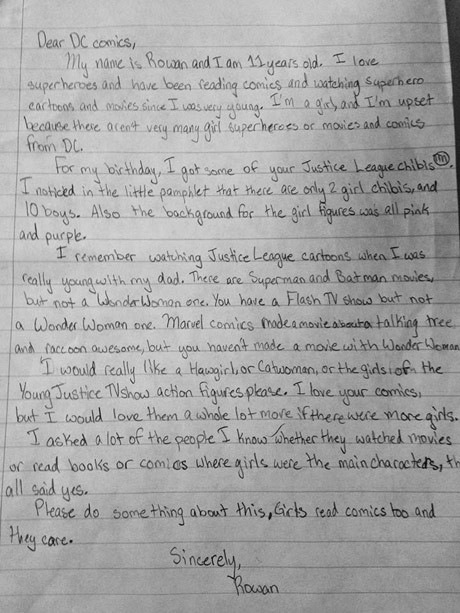 Dear DC comics,
My name is Rowan and I am 11 years old. I love
superheroes and have been reading comics and watching superhero
cartoons and movies since I was very young. I'm a girl, and I'm upset
because there aren't very many girl superheroes or movies and comics
from DC.
For my birthday, I got some of your Justice League chibis ™.
I noticed in the little pamphlet that there are only 2 girl chibis, and
10 boys. Also the background for the girl figures was all pink
and purple.
I remember watching Justice League cartoons when I was
really young with my dad. There are Superman and Batman movies,
but not a Wonder Woman one. You have a Flash TV show but not
a Wonder Woman one. Marvel comics made a movie about a talking tree
and raccoon awesome, but you haven't made a movie with Wonder Woman
I would really like a Hawgirl, or Catwoman, or the girls of the
Young Justice TV show action figures please. I love your comics,
but I would love them a whole lot more if there were more girls.
I asked a lot of the people I know whether they watched movies
or read books or comics where girls were the main characters, th
all said yes.
Please do something about this, Girls read comics too and
they care.
Sincerely,
Rowan